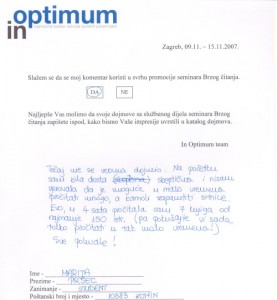 in optimum
Zagreb, 09.11. – 15.11.2007.
Slažem se da se moj komentar koristi u svrhu promocije seminara Brzog čitanja.
DA NE
Najljepše Vas molimo da svoje dojmove sa službenog dijela seminara Brzog
čitanja zapišete ispod, kako bismo Vaše impresije uvrstili u katalog dojmova.
In Optimum team
Tečaj me se veoma dojmio. Na početku
sam bila dosta skeptična i nisam
vjerovala da je moguće u malo vremena
pročitati mnogo, a kamoli zapamtiti sitnice.
Evo, u 4 sata pročitala sam 7 knjiga od
najmanje 150 str. (pa pokušajte vi sada
toliko pročitati u tak malo vremena!)
Sve pohvale!
Ime - MARITA
Prezime -
Zanimanje - STUDENT
Poštanski broj i mjesto -